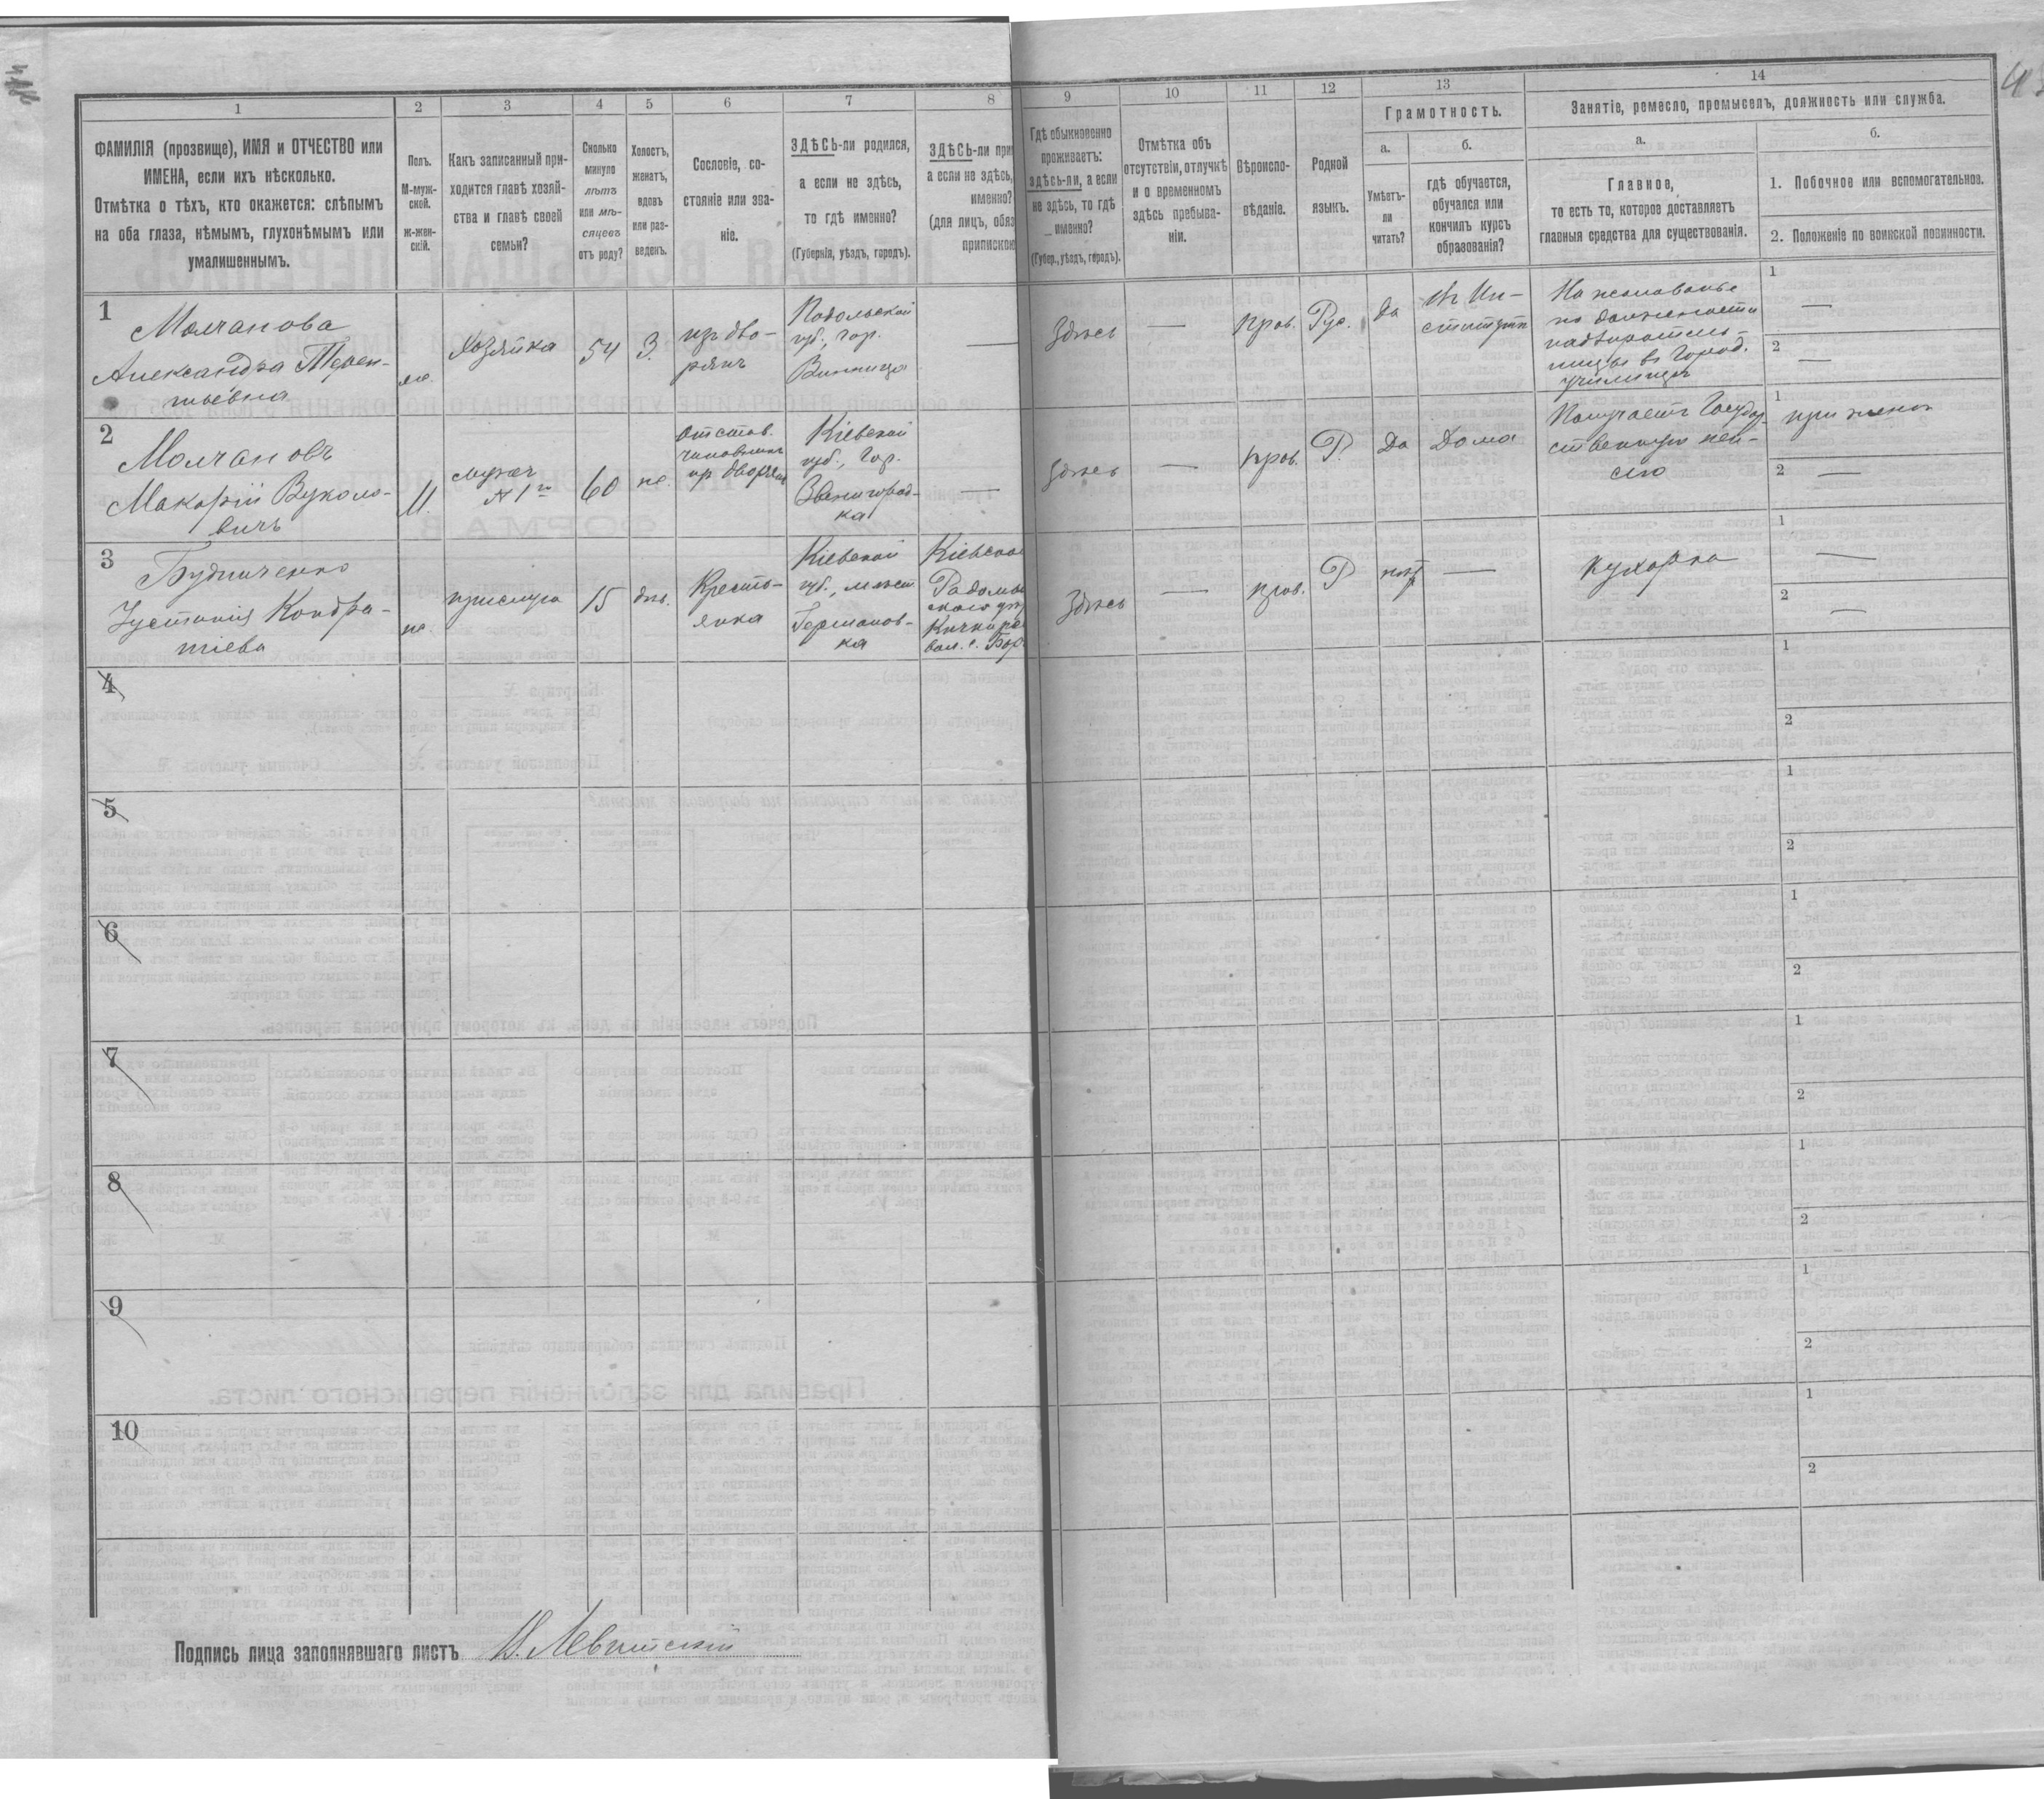 1
2
3
4
5
6
7
8
9
10
11
12
13
14
ФАМИЛІЯ (прозвище), ИМЯ и ОТЧЕСТВО или
ИМЕНА, если ихъ нѣсколько.
Отмѣтка о тѣхъ, кто окажется: слѣпымъ
на оба глаза, нѣмымъ, глухонѣмымъ или
умалишеннымъ.
Полъ.
М-муж-
ской.
ж-жен-
скій.
Какъ записанный при-
ходится главѣ хозяй-
ства и главѣ своей
семьи?
Сколько
минуло
лѣтъ
или мѣ-
сяцевъ
отъ роду?
Холостъ,
женатъ,
вдовъ
или раз-
веденъ.
Сословіе, со-
стояніе или зва-
ніе.
ЗДѢСЬ-ли родился,
а если не здѣсь,
то гдѣ именно?
(Губернія, уѣздъ, городъ).
ЗДѢСЬ-ли при
а если не здѣсь,
именно?
(для лицъ, обяз
припискою
Гдѣ обыкновенно
проживаетъ:
здѣсь-ли, а если
не здѣсь, то гдѣ
именно?
(Губер., уѣздъ, городъ).
Отмѣтка объ
отсутствіи, отлучкѣ
и о временномъ
здѣсь пребыва-
ніи.
Вѣроиспо-
вѣданіе.
Родной
языкъ.
Грамотность.
а.
б.
Умѣетъ-
ли
читать?
гдѣ обучается,
обучался или
кончилъ курсъ
образованія?
Занятіе, ремесло, промыселъ, должность или служба.
а.
б.
Главное,
то есть то, которое доставляетъ
главныя средства для существованія.
1. Побочное или вспомогательное.
2. Положеніе по воинской повинности.
1
Молчанова
Александра Терен-
тьевна
Хозяйка
54
З.
изъ дво-
рянъ
Подольской
губ., гор.
Винница
—
Здѣсь
—
прав.
Рус.
да
въ Ин-
ститутѣ
На жалованье
по должности
надзиратель-
ницы въ Город.
училищѣ
1
—
2
—
2
Молчановъ
Макарій Вуколо-
вичъ
М.
мужъ
№ 1го
60
отстав.
чиновникъ
Кіевской
губ., гор.
Звенигород-
ка
—
Здѣсь
—
прав.
Р.
да
Дома
Получаетъ Государ-
ственную пен-
сію
1
при женѣ
2
—
3
Будниченко
Іустинія Кондра-
тіева
прислуга
15
дѣв.
Кресть-
янка
Кіевской
губ., мѣст.
Германов-
ка
Кіевской
Радомы
вол. с. Бор
Здѣсь
—
прав.
Р
нѣтъ
—
кухарка
1
—
2
—
4
1
2
5
1
2
6
1
2
7
1
2
8
1
2
9
1
2
10
1
2
Подпись лица заполнявшаго листъ
Левитскій